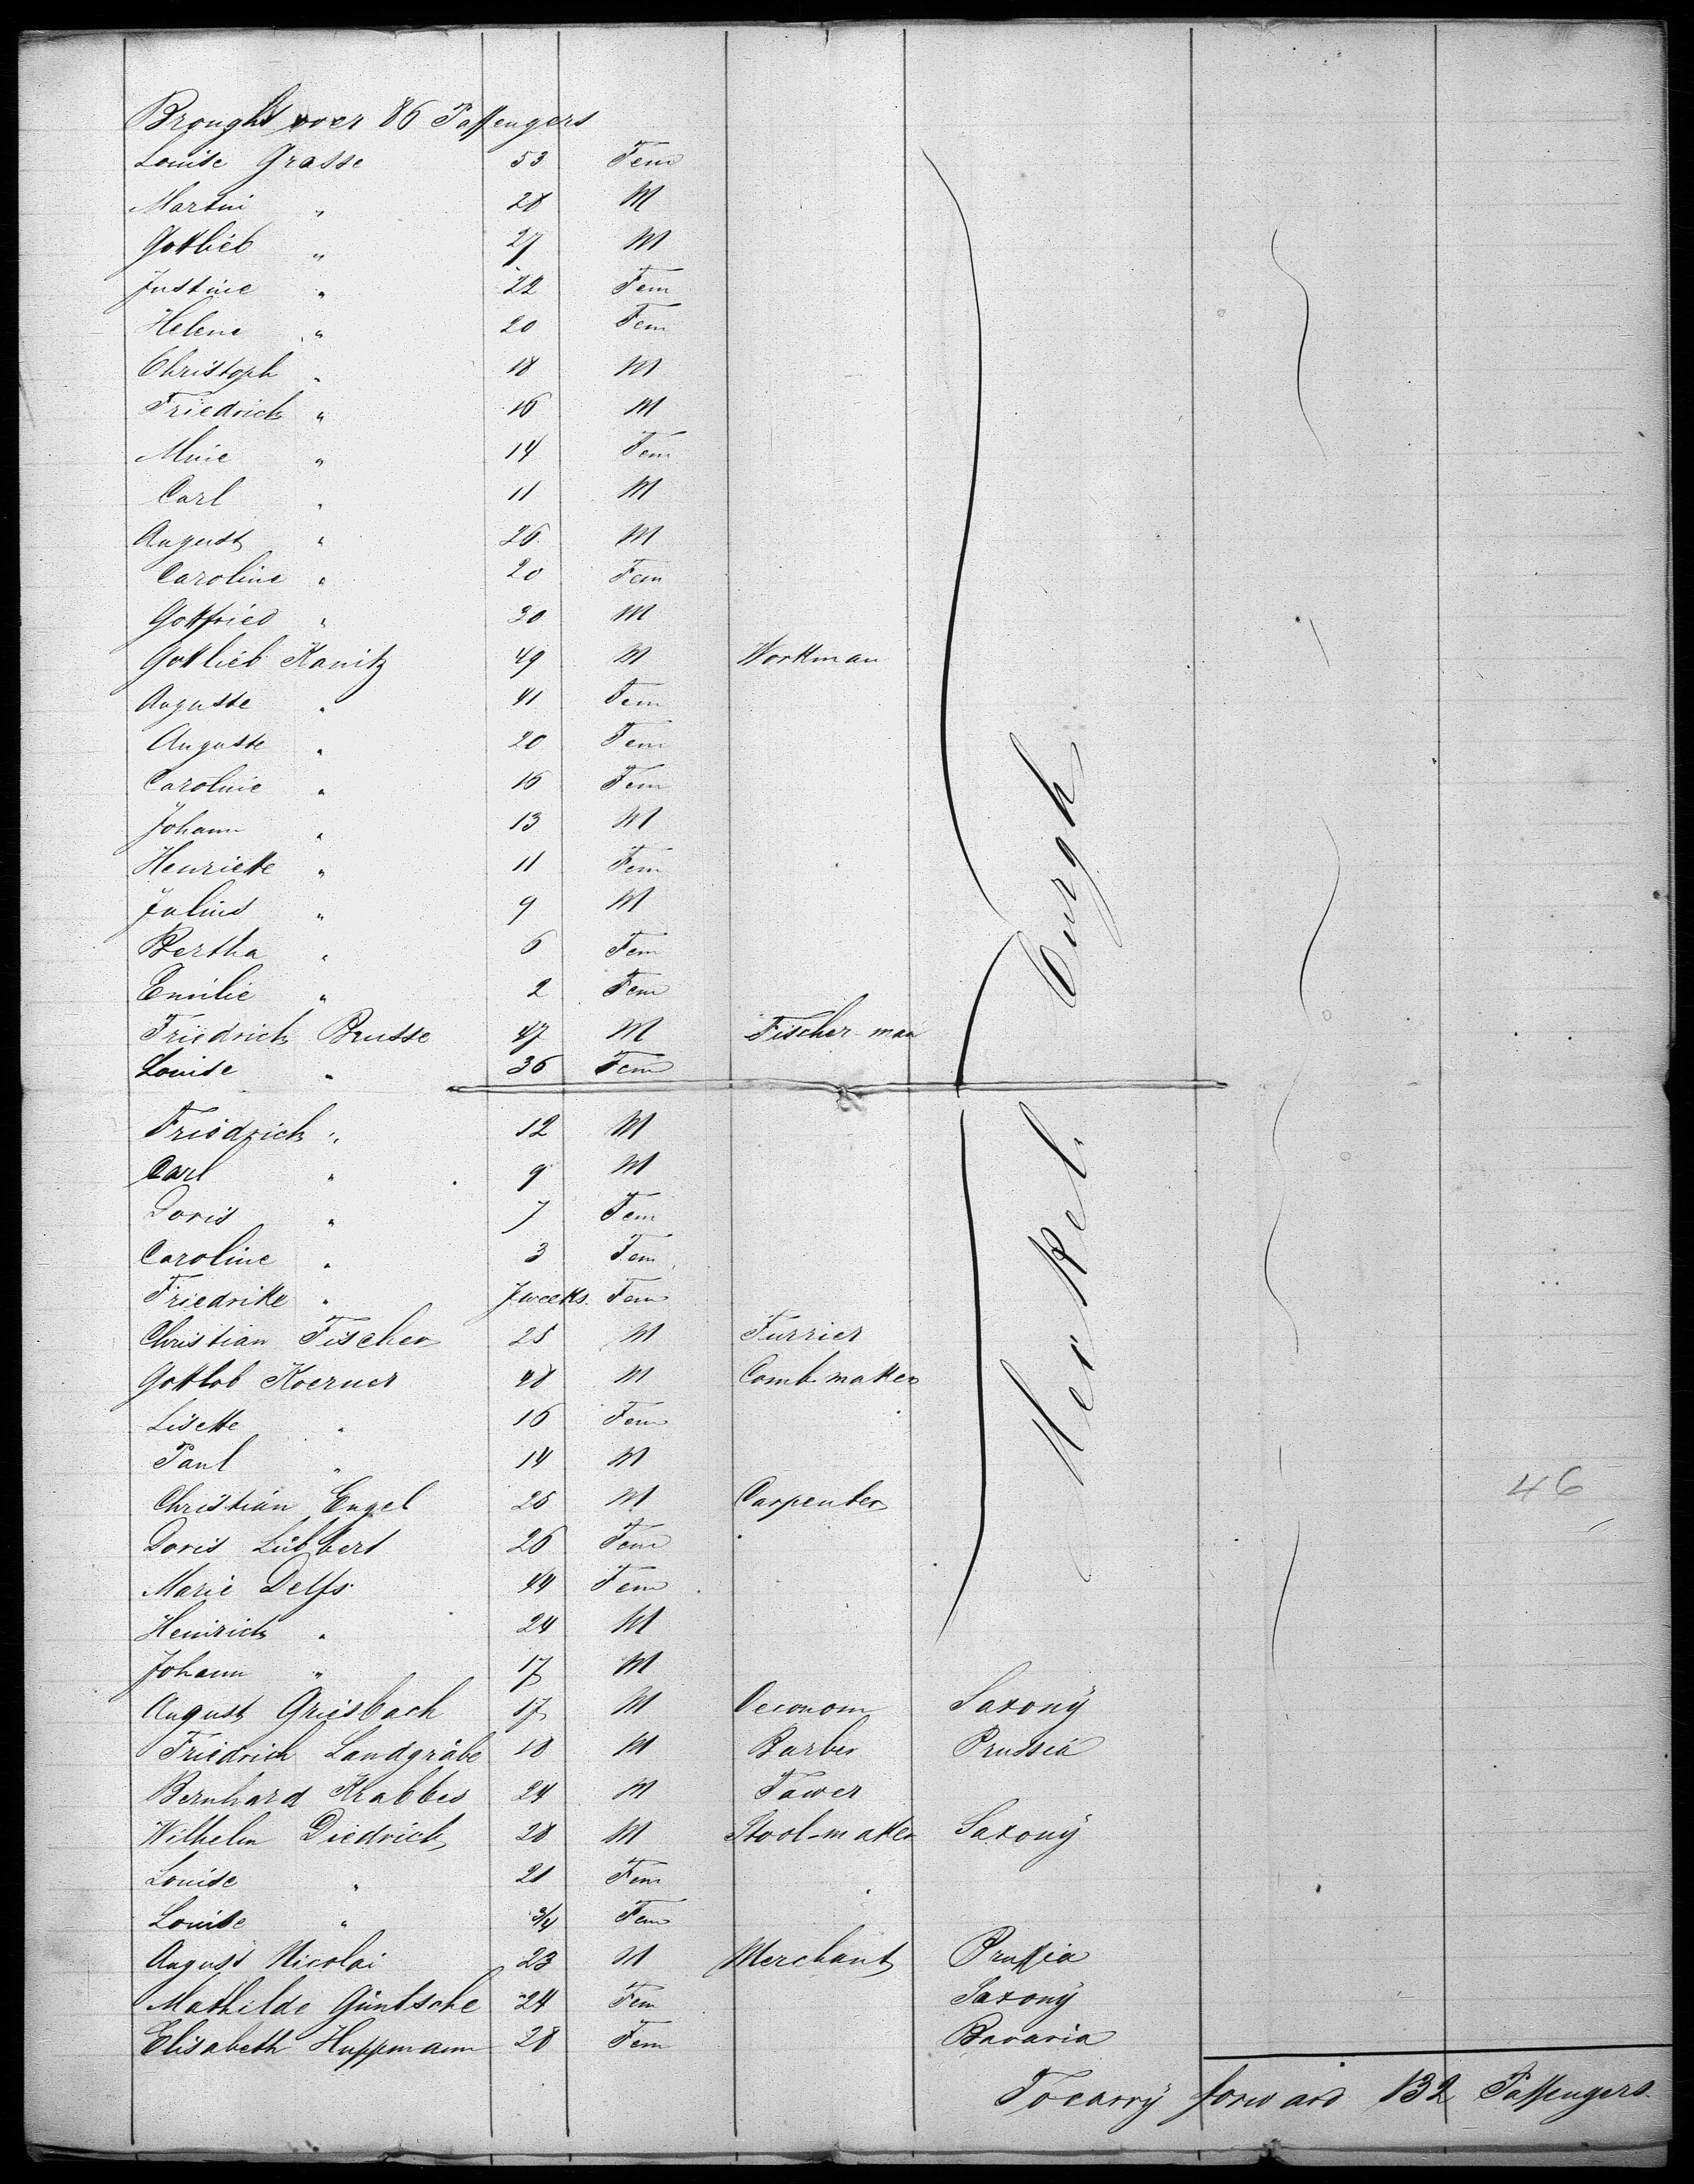 Brought over 86 Passengers
Louise Grasse 53 Fem
Martin " 28 M
Gottlieb " 27 M
Justine " 22 Fem
Helene " 20 Fem
Christoph " 18 M
Friedrich " 16 M
Mine " 14 Fem
Carl " 11 M
August " 26 M
Caroline " 20 Fem
Gottfried " 30 M
Gottlieb Kanitz 49 M Workman
Auguste " 41 Fem
Auguste " 20 Fem
Caroline " 16 Fem
Johann " 13 M
Henriette " 11 Fem
Julius " 9 M
Bertha " 6 Fem
Emilie " 2 Fem
Friedrich Busse 47 M Fischer-man
Louise " 36 Fem
Friedrich " 12 M
Carl " 9 M
Doris " 7 Fem
Caroline " 3 Fem
Friedrike " 7 weeks. Fem
Christian Fischer 25 M Furrier
Gottlob Koerner 48 M Comb-maker
Lisette " 16 Fem
Paul " 14 M
Christian Engel 25 M Carpenter 46
Doris Lübbert 26 Fem
Marie Delfs 44 Fem
Heinrich " 24 M
Johann " 17 M
August Griesbach 17 M Oeconom Saxony
Friedrich Landgräbe 18 M Barber Prussia
Bernhard Krabbes 24 M Tawer
Wilhelm Diedrich 28 M Stool-maker Saxony
Louise " 21 Fem
Louise " 3/4 Fem
August Nicolai 23 M Merchant Prussia
Mathilde Güntsche 24 Fem Saxony
Elisabeth Huppmann 28 Fem Bavaria
To carry forward 132 Passengers